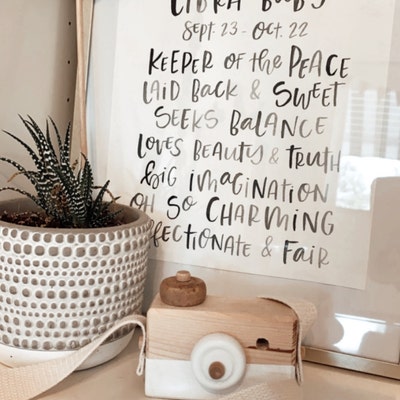 LIBRA BABY
SEPT. 23 - OCT. 22
KEEPER of the PEACE
LAID BACK & SWEET
SEEKS BALANCE
LOVES BEAUTY & TRUTH
BIG IMAGINATION
OH SO CHARMING
AFFECTIONATE & FAIR